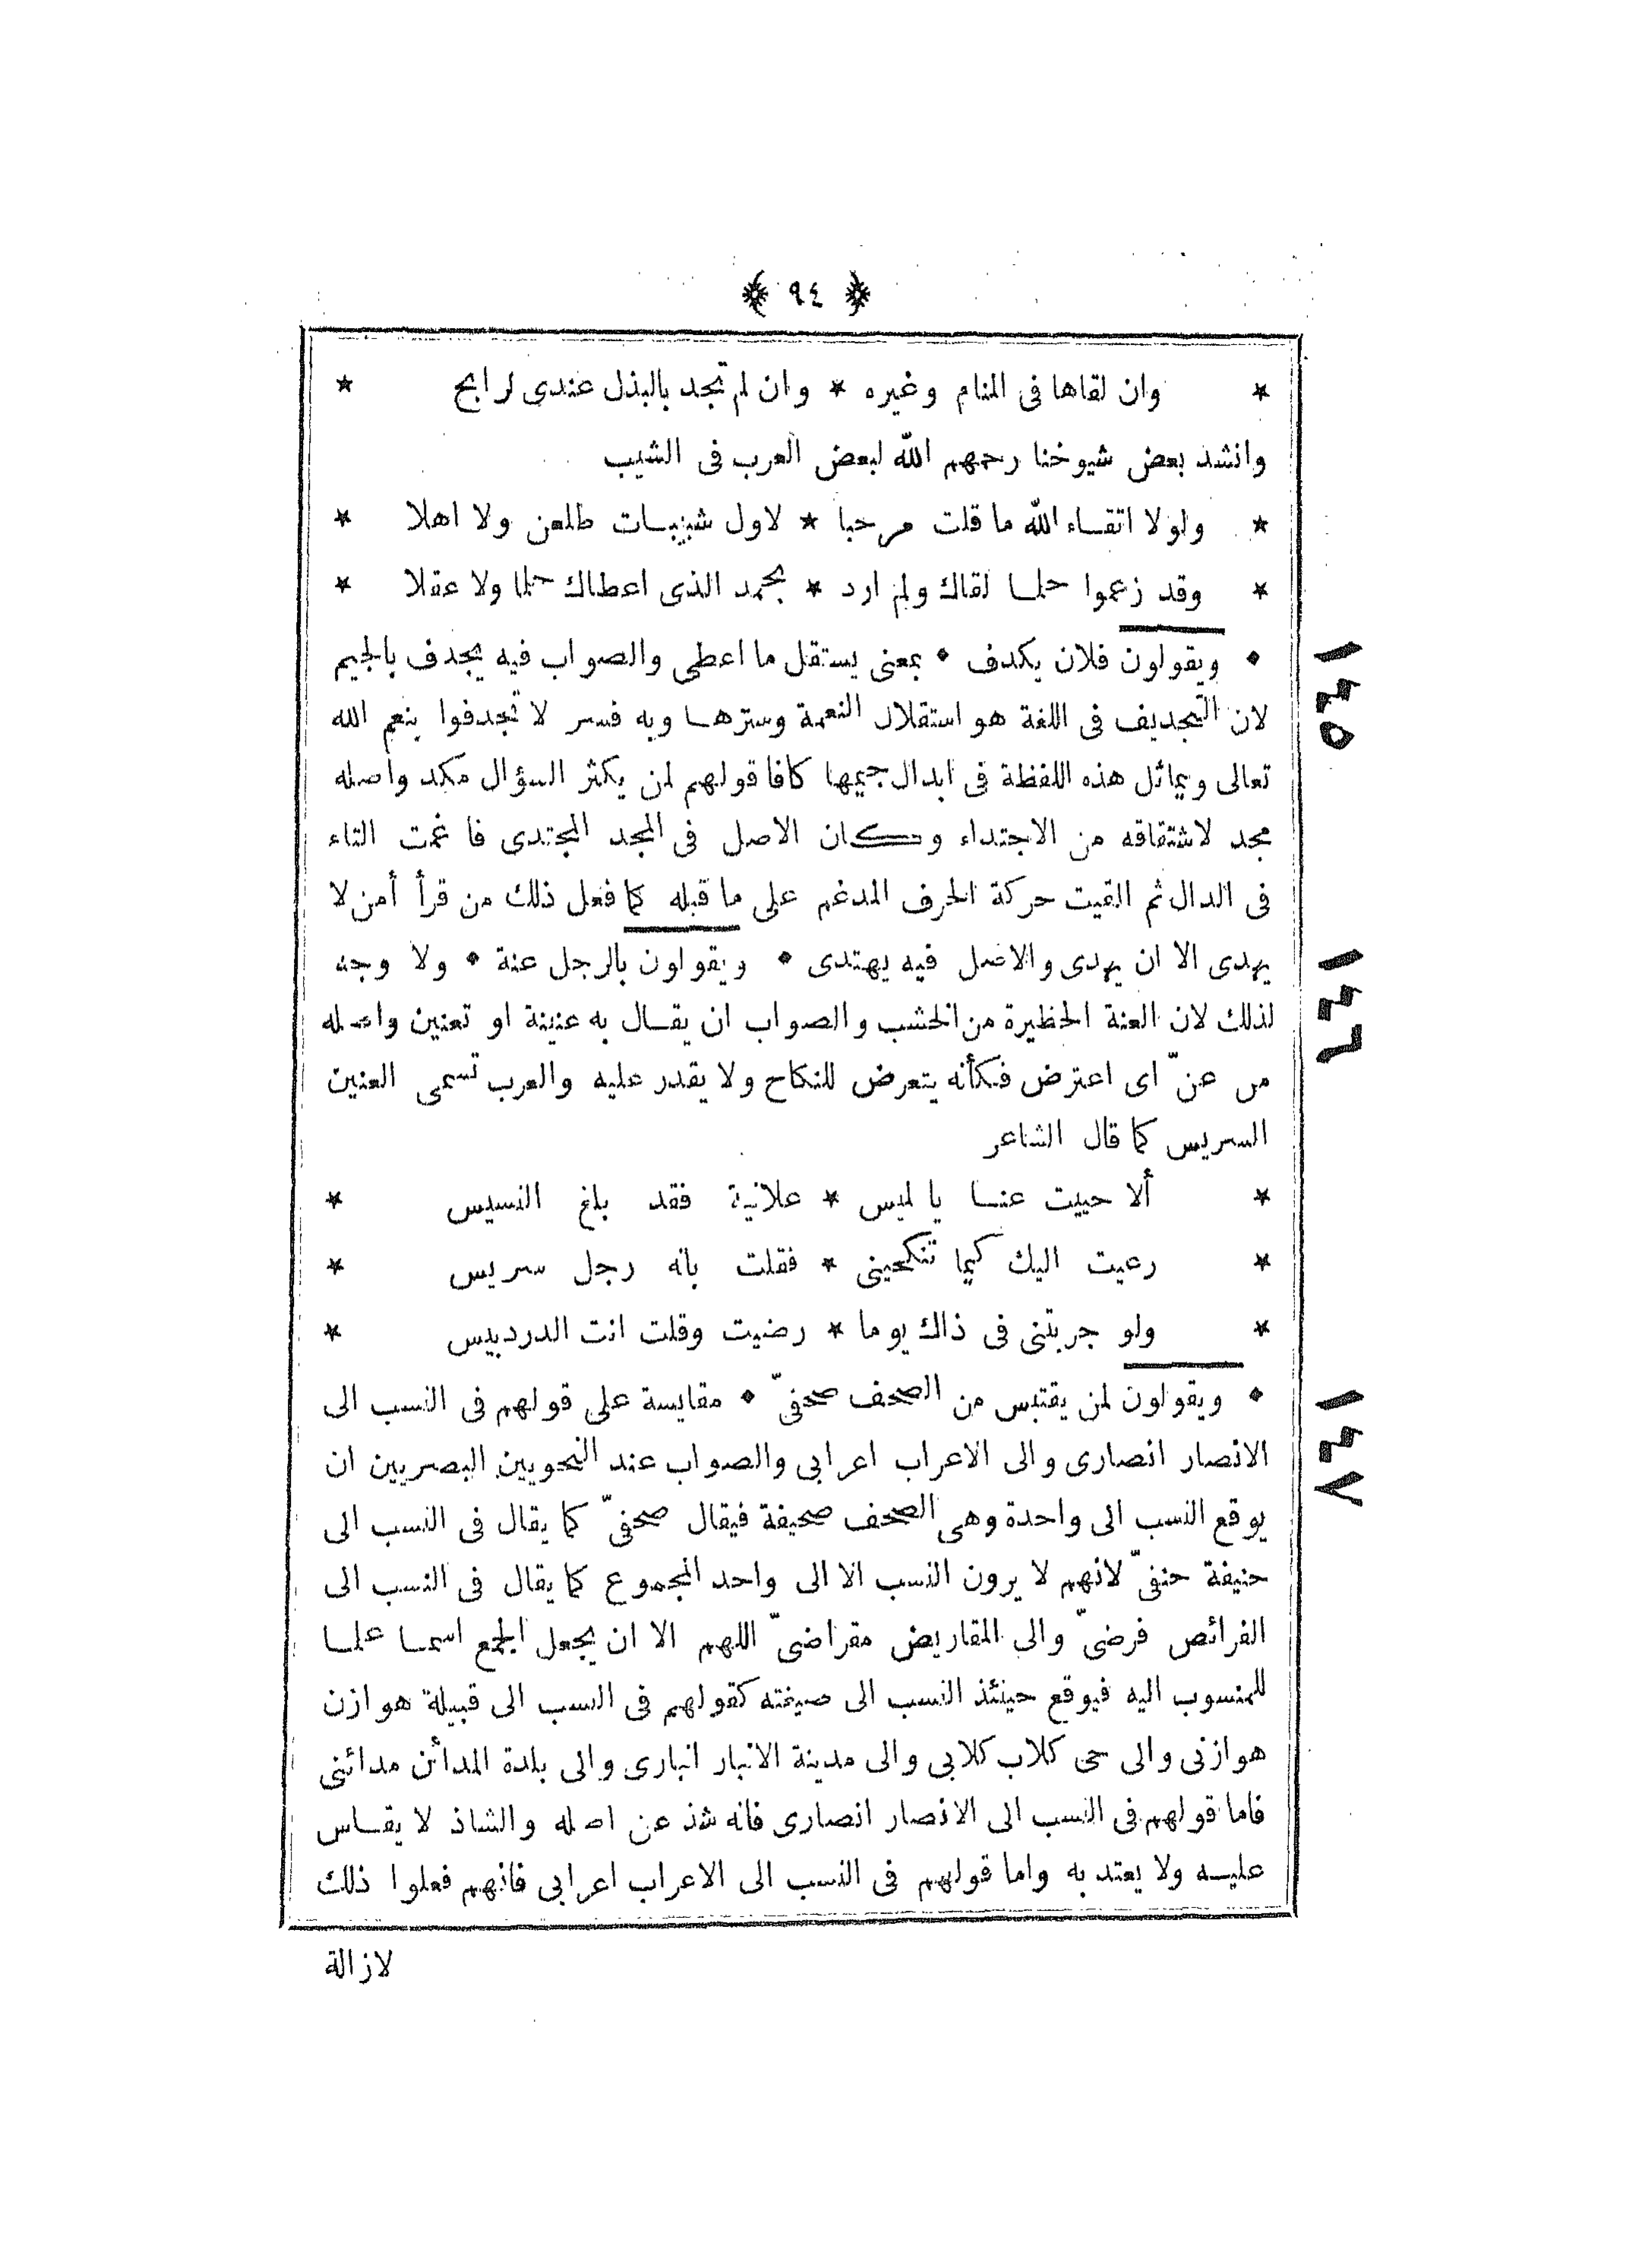 ﴿ ٩٤ ﴾
* وان لقاها فى المنام وغيره * وان لم تجد بالبذل عندى لرابح *
وانشد بعض شيوخنا رحمهم الله لبعض العرب فى الشيب
* ولولا اتقاء الله ما قلت مرحبا * لاول شيبات طلعن ولا اهلا *
* وقد زعموا حلما لقاك ولم ارد * بحمد الذى اعطاك حلما ولا عقلا *
١٤٥
• ويقولون فلان يكدف • بمعنى يستقل ما اعطى والصواب فيه يجدف بالجيم
لان التجديف فى اللغة هو استقلال النعمة وسترها وبه فسر لا تجدفوا بنعم الله
تعالى ويماثل هذه اللفظة فى ابدال جيمها كافا قولهم لمن يكثر السؤال مكد واصله
مجد لاشتقاقه من الاجتداء وكان الاصل فى المجد المجتدى فا غمت التاء
فى الدال ثم القيت حركة الحرف المدغم على ما قبله كما فعل ذلك من قرأ أمن لا
١٤٦
يهدى الا ان يهدى والاصل فيه يهتدى • ويقولون بالرجل عنة • ولا وجه
لذلك لان العنة الحظيرة من الخشب والصواب ان يقال به عنينة او تعنين واصله
من عنّ اى اعترض فكأنه يتعرض للنكاح ولا يقدر عليه والعرب تسمى العنين
السريس كما قال الشاعر
* ألا حييت عنا يا لميس * علانية فقد بلغ النسيس *
* رعيت اليك كيما تنكحينى * فقلت بانه رجل سريس *
* ولو جربتنى فى ذاك يوما * رضيت وقلت انت الدردبيس *
١٤٧
• ويقولون لمن يقتبس من الصحف صحفىّ • مقايسة على قولهم فى النسب الى
الانصار انصارى والى الاعراب اعرابى والصواب عند النحويين البصريين ان
يوقع النسب الى واحدة وهى الصحف صحيفة فيقال صحفىّ كما يقال فى النسب الى
حنيفة حنفىّ لانهم لا يرون النسب الا الى واحد المجموع كما يقال فى النسب الى
الفرائص فرضىّ والى المقاريض مقراضىّ اللهم الا ان يجعل الجمع اسما علما
للمنسوب اليه فيوقع حينئذ النسب الى صيغته كقولهم فى النسب الى قبيلة هوازن
هوازنى والى حى كلاب كلابى والى مدينة الانبار انبارى والى بلدة المدأئن مدائنى
فاما قولهم فى النسب الى الانصار انصارى فانه شذ عن اصله والشاذ لا يقاس
عليه ولا يعتد به واما قولهم فى النسب الى الاعراب اعرابى فانهم فعلوا ذلك
لازالة